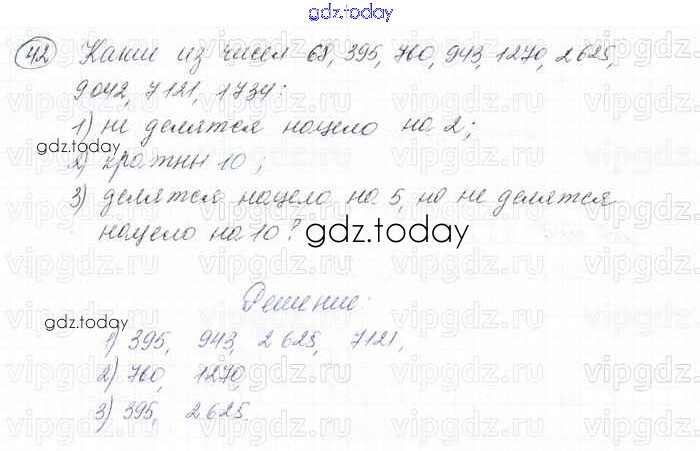 gdz.today
42 Какие из чисел 68, 395, 760, 943, 1270, 2625,
9042, 7121, 1734:
1) не делятся нацело на 2;
gdz.today
2) кратны 10;
3) делятся нацело на 5, но не делятся
нацело на 10?
gdz.today
Решение:
gdz.today
1) 395, 943, 2625, 7121,
2) 760, 1270,
3) 395, 2625.